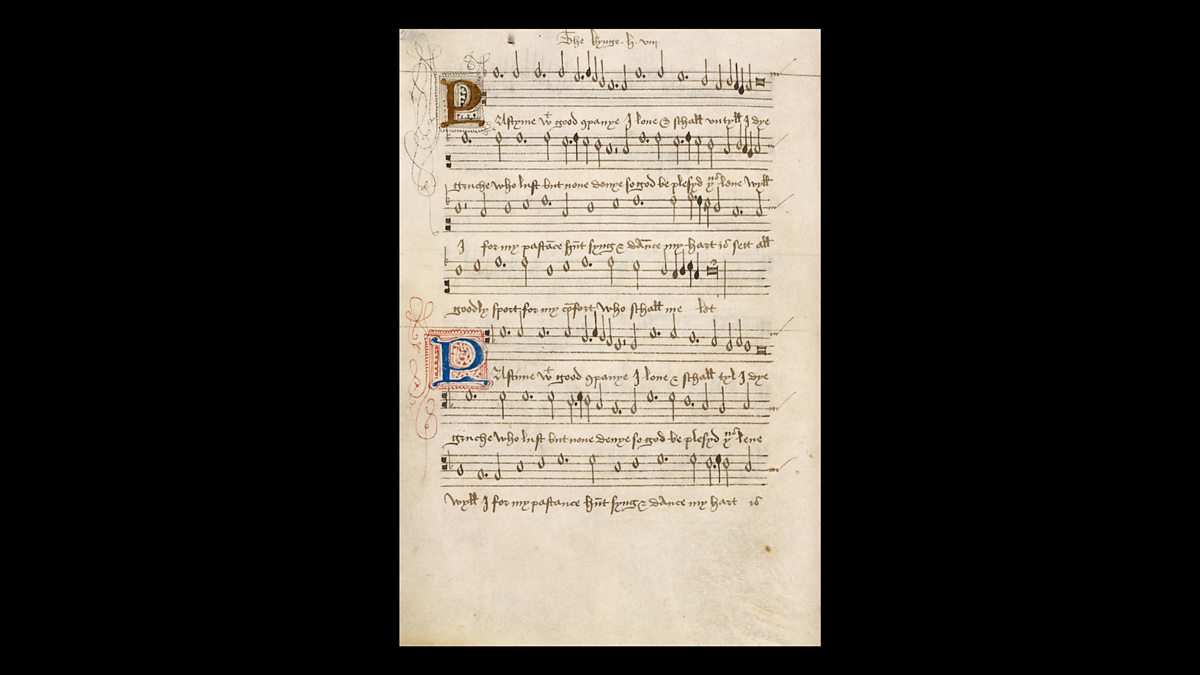 The kynge .h. viii.
PAstyme wt good 9panye I loue & schall vntyll I dye
gruche who lust but none denye so god be plesyd yus leue wyll
I for my pastāce hūt syng & dāce my hart is sett all
goodly sport for my cōfort who schall me let
PAstime wt good 9panye I loue & schall tyl I dye
gruche who lust but none denye so god be plesyd yus leue
wyll I for my pastance hūt syng & dāce my hart is